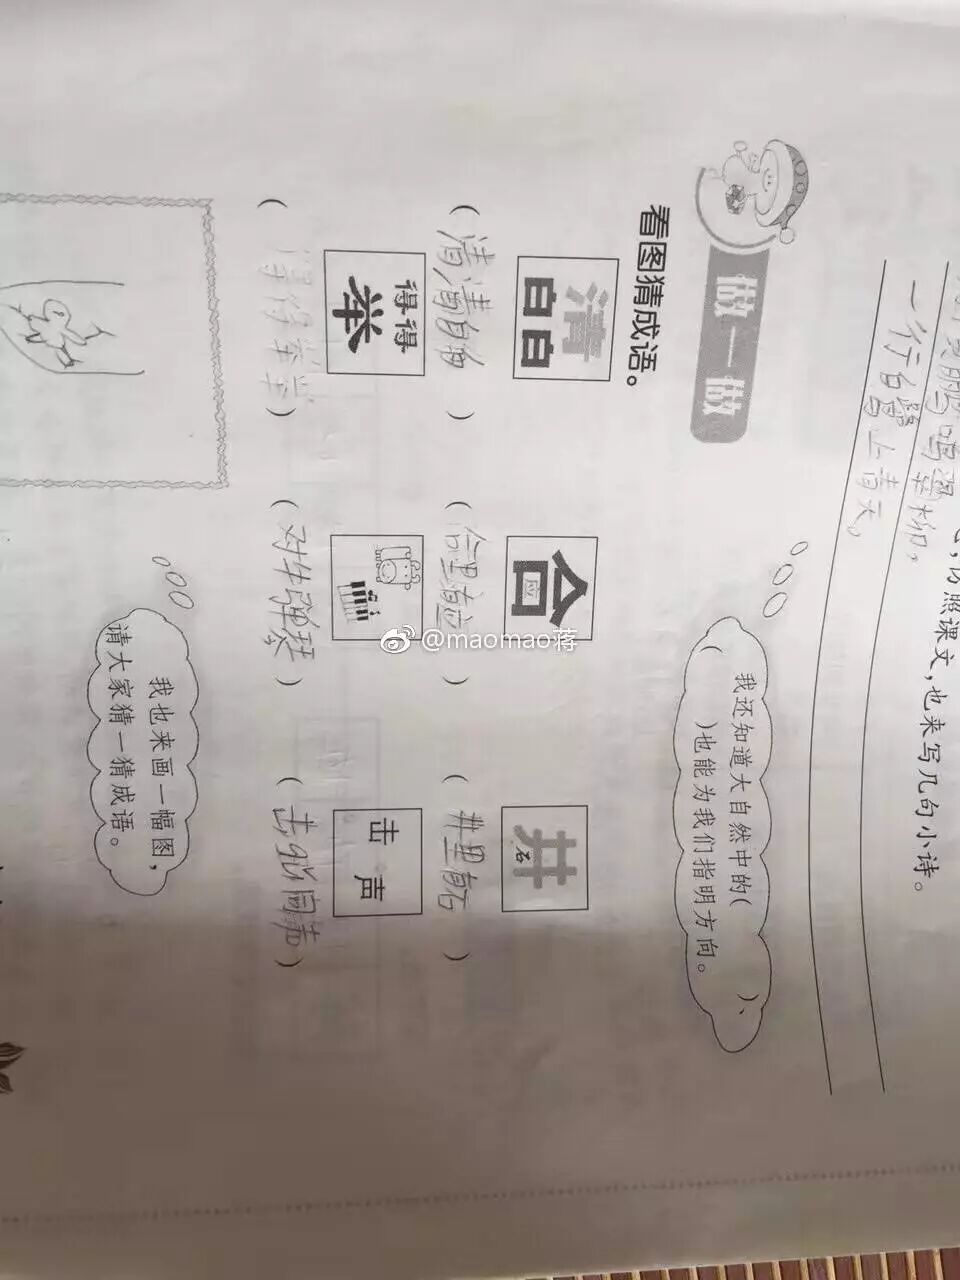 仿照课文,也来写几句小诗。
黄鹂鸣翠柳，
一行白鹭上青天。
我还知道大自然中的( )、
( )也能为我们指明方向。
做一做
看图猜成语。
清
白白
合
应
井
石
(清清白白)
(合里有应)
(井里有石)
得得
举
击
声
(得得举举)
(对牛弹琴)
我也来画一幅图，
请大家猜一猜成语。
@maomao蒋